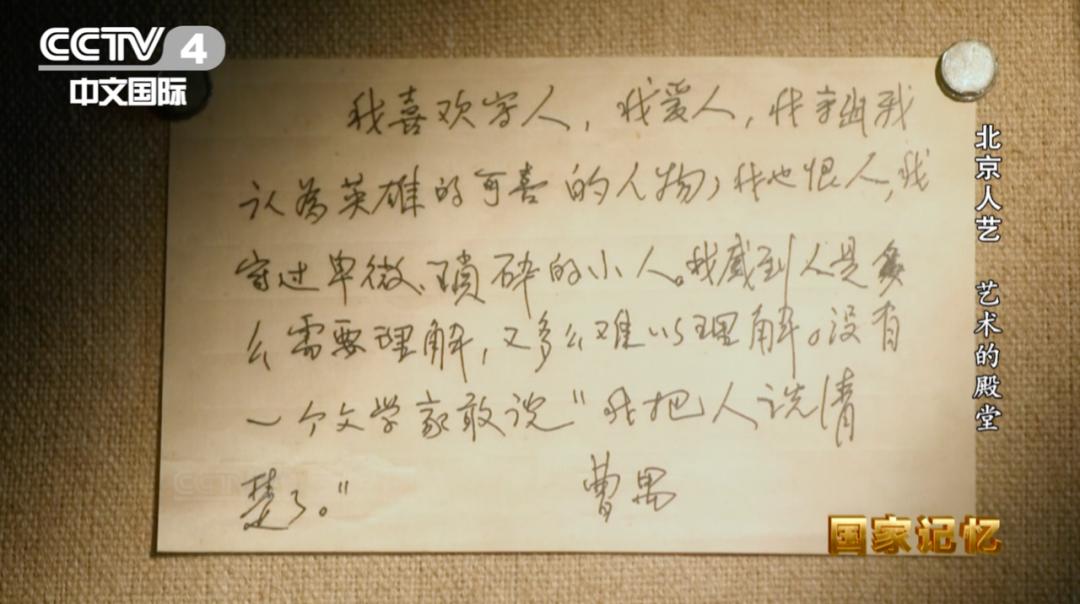 CCTV 4
中文国际
我喜欢写人，我爱人，我写出我
认为英雄的可喜的人物，我也恨人，我
写过卑微、琐碎的小人。我感到人是多
么需要理解，又多么难以理解。没有
一个文学家敢说“我把人说清
楚了。”
曹禺
北京人艺 艺术的殿堂
国家记忆
CCTV